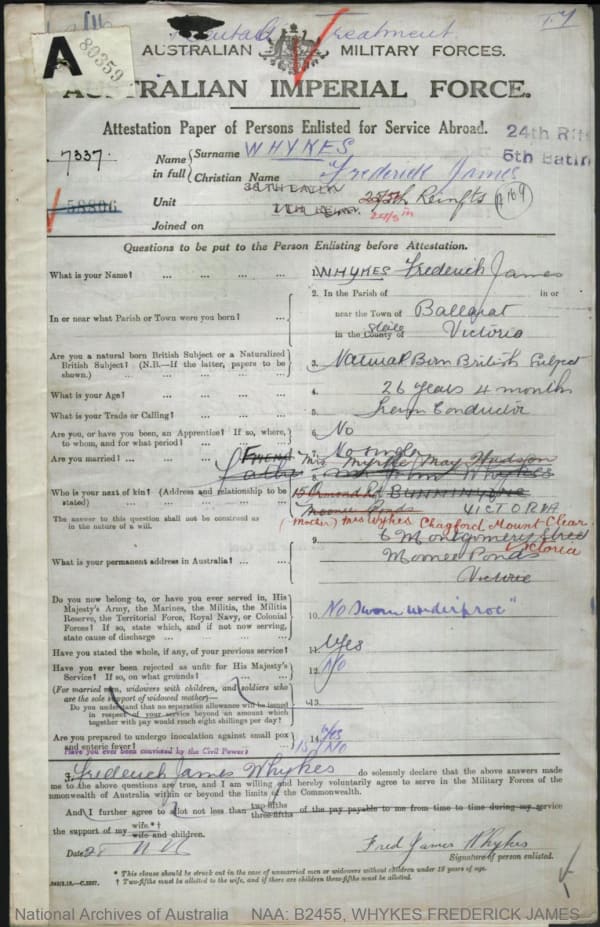 Treatment
A 80359
AUSTRALIAN MILITARY FORCES.
AUSTRALIAN IMPERIAL FORCE.
Attestation Paper of Persons Enlisted for Service Abroad.
24th R
5th Batln
7337.
Name in full { Surname WHYKES
Christian Name Frederick James
58806
Unit Reinfts
Joined on
Questions to be put to the Person Enlisting before Attestation.
What is your Name? ... ... ... ... 1. WHYKES Frederick James
In or near what Parish or Town were you born? ... 2. In the Parish of in or
near the Town of Ballarat
in the County of State Victoria
Are you a natural born British Subject or a Naturalized British Subject? (N.B.—If the latter, papers to be shown.) 3. Natural Born British Subject
What is your Age? ... ... ... ... 4. 26 years 4 months
What is your Trade or Calling? ... ... 5. Conductor
Are you, or have you been, an Apprentice? If so, where, to whom, and for what period? ... 6. No
Are you married? ... ... 7. No single
FRIEND Mrs Myrtle May Hudson
John Whykes
Who is your next of kin? (Address and relationship to be stated) 8. 15 Ormond Rd BUNINYONG
Moonee Ponds VICTORIA
The answer to this question shall not be construed as in the nature of a will.
(Mother) Mrs Wykes Chagford Mount Clear
Victoria
What is your permanent address in Australia? ... 9. 6 Montgomery Street
Moonee Ponds
Victoria
Do you now belong to, or have you ever served in, His Majesty's Army, the Marines, the Militia, the Militia Reserve, the Territorial Force, Royal Navy, or Colonial Forces? If so, state which, and if not now serving, state cause of discharge ... 10. No Sworn under proc"
Have you stated the whole, if any, of your previous service? 11. Yes
Have you ever been rejected as unfit for His Majesty's Service? If so, on what grounds? ... 12. No
(For married men, widowers with children, and soldiers who are the sole support of widowed mother)—
Do you understand that no separation allowance will be issued in respect of your service beyond an amount which together with pay would reach eight shillings per day? 13.
Are you prepared to undergo inoculation against small pox and enteric fever? 14. Yes
Have you ever been convicted by the Civil Power? 15. No
I, Frederick James Whykes do solemnly declare that the above answers made
me to the above questions are true, and I am willing and hereby voluntarily agree to serve in the Military Forces of the
mmonwealth of Australia within or beyond the limits of the Commonwealth.
And I further agree to allot not less than two-fifths three-fifths of the pay payable to me from time to time during my service
the support of my wife.*† wife and children.
Date
Fred James Whykes
Signature of person enlisted.
* This clause should be struck out in the case of unmarried men or widowers without children under 18 years of age.
† Two-fifths must be allotted to the wife, and if there are children three-fifths must be allotted.
National Archives of Australia NAA: B2455, WHYKES FREDERICK JAMES